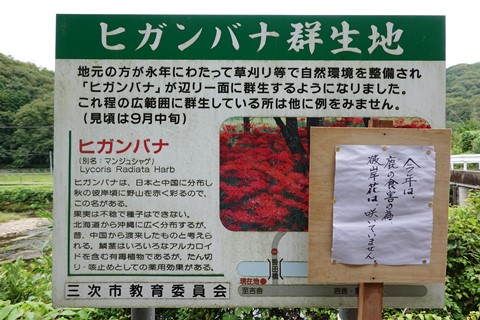 ヒガンバナ群生地
地元の方が永年にわたって草刈り等で自然環境を整備され
「ヒガンバナ」が辺り一面に群生するようになりました。
これ程の広範囲に群生している所は他に例をみません。
(見頃は9月中旬)
ヒガンバナ
(別名:マンジュシャゲ)
Lycoris Radiata Harb
ヒガンバナは、日本と中国に分布し
秋の彼岸頃に野山を赤く彩るので、
この名がある。
果実は不稔で種子はできない。
北海道から沖縄に広く分布するが、
昔、中国から渡来したものと考えら
れる。鱗茎はいろいろなアルカロイ
ドを含む有毒植物であるが、たん切
り・咳止めとしての薬用効果がある。
三次市教育委員会
現在地
至吉舎
今年は
鹿の食害の為
彼岸花は咲いていません。